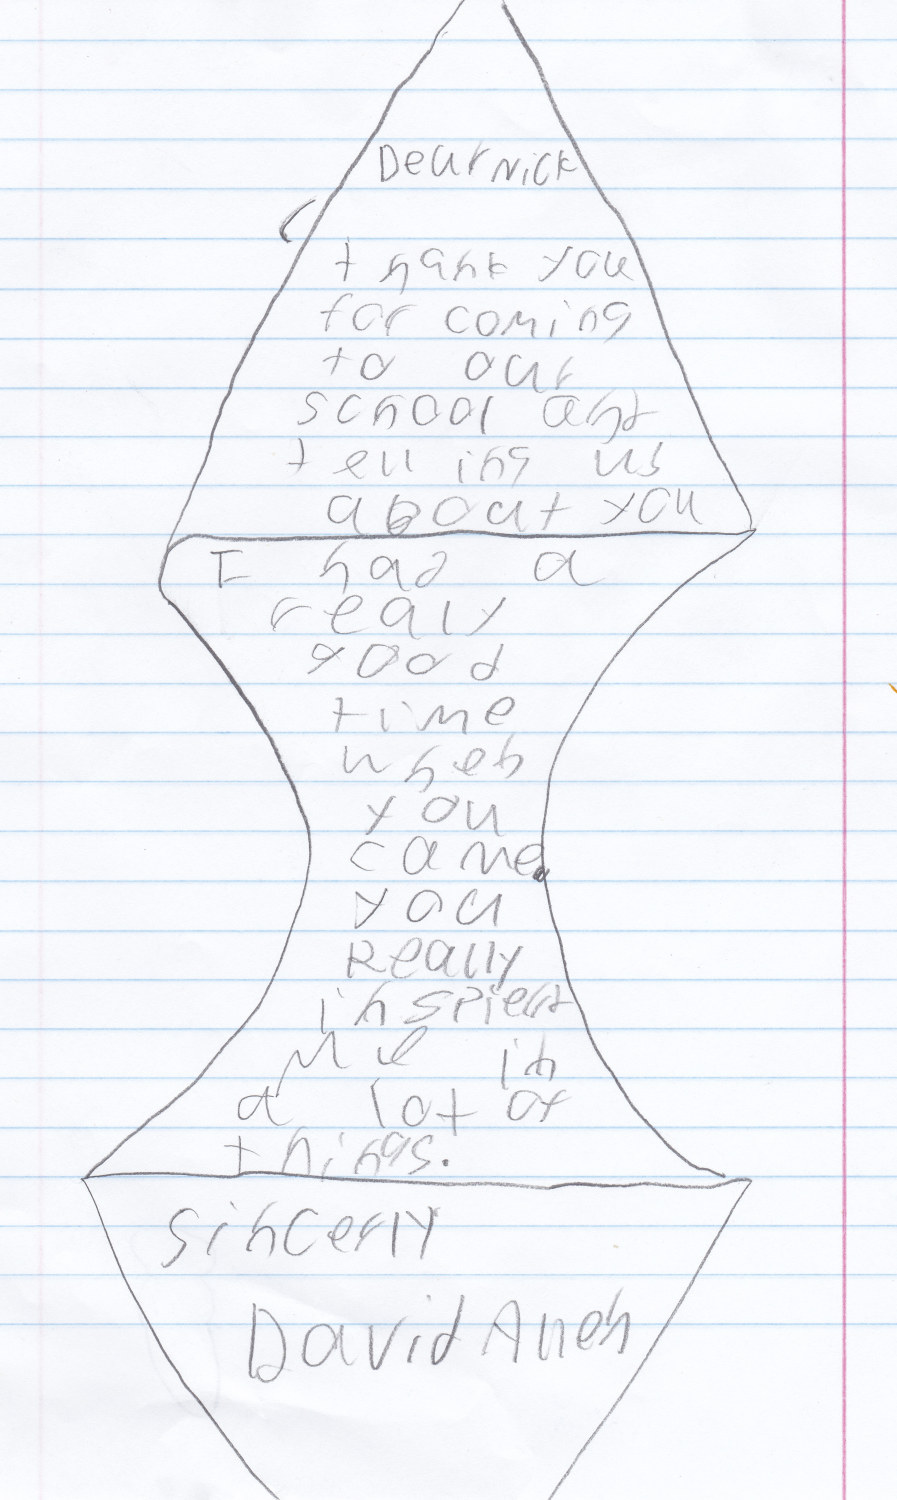 Dear Nick
thank you
for coming
to our
school and
telling us
about you
I had a
realy
good
time
when
you
came.
you
Really
inspierd
me in
a lot of
things.
Sincerly
David Allen